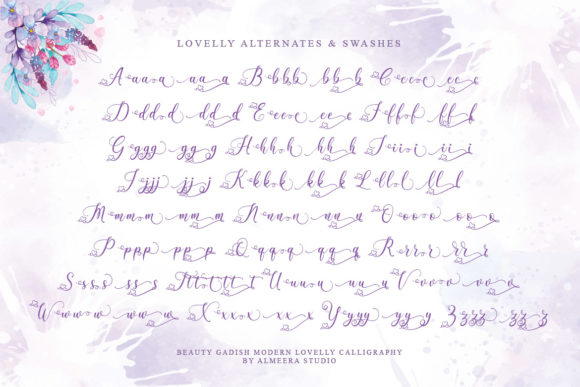 LOVELLY ALTERNATES & SWASHES
Aaaaa aa a Bbbbb bb b Ccccc cc c
Ddddd dd d Eeeee ee e Fffff ff f
Ggggg gg g Hhhhh hh h Iiiii ii i
Jjjjj jj j Kkkkk kk k Lllll ll l
Mmmmm mm m Nnnnn nn n Ooooo oo o
Ppppp pp p Qqqqq qq q Rrrrr rr r
Sssss ss s Ttttt tt t Uuuuu uu u Vvvvv vv v
Wwwww ww w Xxxxx xx x Yyyyy yy y Zzzzz zz z
BEAUTY GADISH MODERN LOVELLY CALLIGRAPHY
BY ALMEERA STUDIO